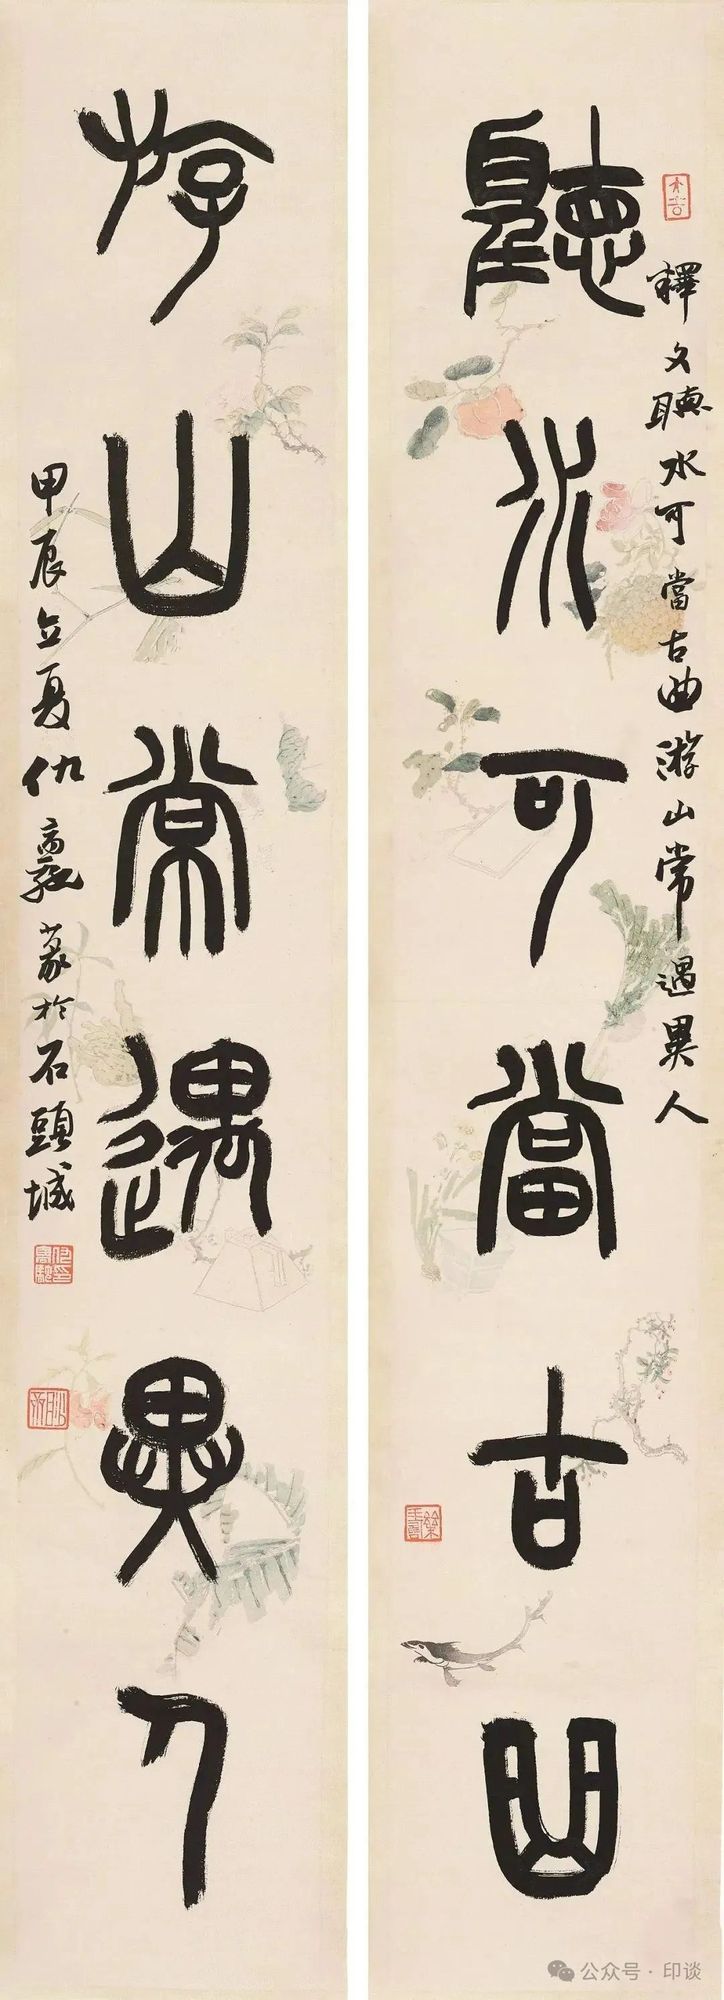 聽水可當古曲
釋文聽水可當古曲游山常遇異人
游山常遇異人
甲辰立夏仇高馳篆於石頭城
公众号·印谈